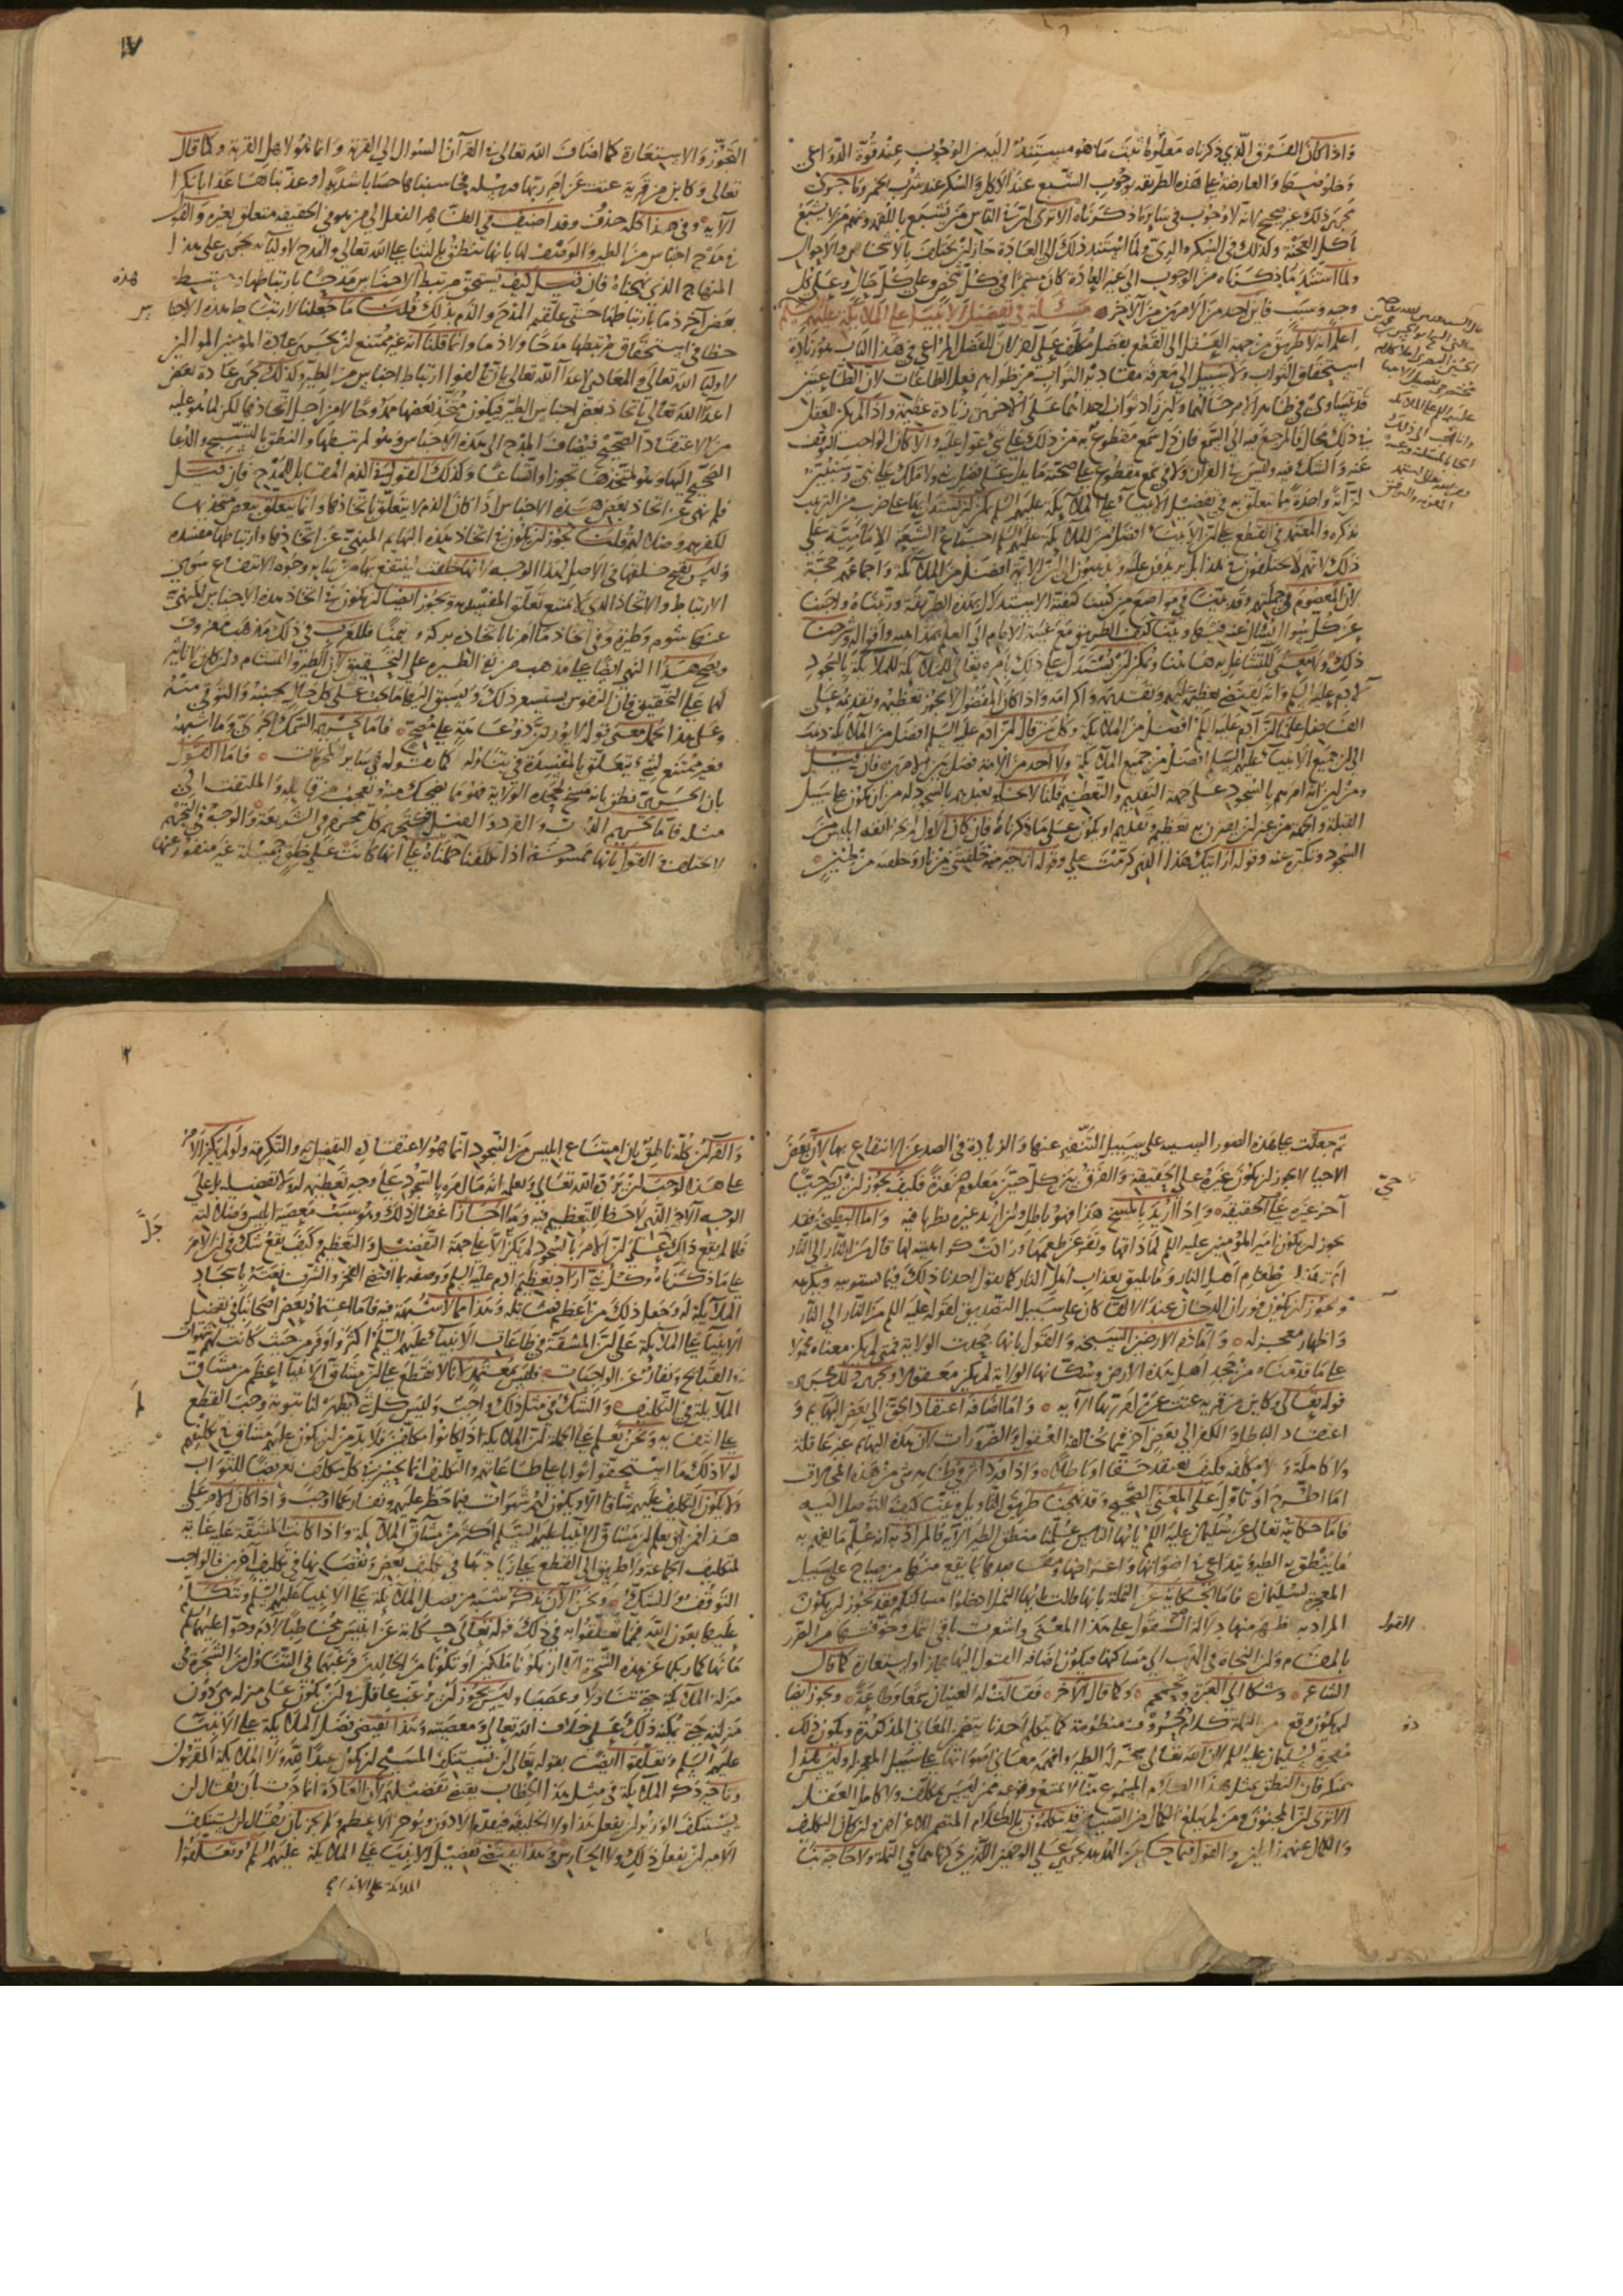 واذا كان الفرق الذي ذكرناه معلوما ثبت ما هو مستند اليه من الوجوب عند قوة الدواعي
وخلوصها والعارضة على هذه الطريقة بوجوب الشبع عند الاكل والسكر عند شرب الخمر وما جرى
مجرى ذلك غير صحيح لانه لا وجوب في سائر ما ذكرناه الا ترى ان في الناس من يشبع باللقمة ومنهم من لا يشبع
باكل الصحفة وكذلك في السكر والري ولما استند ذلك الى العادة جاز ان يختلف بالاشخاص والاحوال
ولما استند ما ذكرناه من الوجوب الى غير العادة كان مستمرا في كل شخص وعلى كل حال وعلى كل
وجه وسبب فاين احد من الامرين من الآخر مسئلة في تفضيل الانبيا على الملائكة عليهم السلم
اعلم انه لا طريق من جهة العقل الى القطع بفضل مكلف على آخر لان الفضل المراعى في هذا الباب هو زيادة
استحقاق الثواب ولا سبيل الى معرفة مقادير الثواب من ظواهر فعل الطاعات لان الطاعتين
قد تتساوى في ظاهر الامر حالهما وان زاد ثواب احداهما على الاخرى زيادة عظيمة واذا لم يكن للعقل
في ذلك مجال فالمرجع فيه الى السمع فان دل سمع مقطوع به من ذلك على شئ عول عليه والا كان الواجب التوقف
عنه والشك فيه وليس في القرآن ولا في سمع مقطوع على صحته ما يدل على فضل نبي على ملك ولا ملك على نبي وسنبين
ان آية واحدة مما يتعلق به في تفضيل الانبيا على الملائكة عليهم السلم يمكن ان يستدل بها على ضرب من الترتيب
نذكره والمعتمد في القطع على ان الانبيا افضل من الملائكة عليهم السلم اجماع الشيعة الامامية على
ذلك لانهم لا يختلفون في هذا بل يزيدون عليه ويذهبون الى ان الائمة افضل من الملائكة واجماعهم حجة
لان المعصوم في جملتهم وقد بينا في مواضع من كتبنا كيفية الاستدلال بهذه الطريقة ورتبناه واجبنا
عن كل سؤال يسأل عنه فيها وبينا كيف الطريق مع غيبة الامام الى العلم بمذاهبه واقواله وشرحنا
ذلك فلا معنى للتشاغل به ههنا ويمكن ان يستدل على ذلك بامره تعالى للملائكة بالسجود
لآدم عليه السلم وانه يقتضي تعظيمه عليهم وتقديمه واكرامه واذا كان المفضول لا يجوز تعظيمه وتقديمه على
الفاضل علمنا ان آدم عليه السلم افضل من الملائكة وكل من قال ان آدم عليه السلم افضل من الملائكة ذهب
الى ان جميع الانبيا عليهم السلم افضل من جميع الملائكة ولا احد من الامة فصل بين الامرين فان قيل
ومن اين انه امرهم بالسجود على جهة التقديم والتعظيم قلنا لا يخلو تعبدهم بالسجود له من ان يكون على سبيل
القبلة والجهة من غير ان يقترن به تعظيم وتقديم او يكون على ما ذكرناه فان كان الاول لم يجز انفة ابليس من
السجود وتكبره عنه وقوله ارايتك هذا الذي كرمت علي وقوله انا خير منه خلقتني من نار وخلقته من طين
١٧
التجوز والاستعارة كما اضاف الله تعالى في القرآن السوال الى القرية وانما هو لاهل القرية وكما قال
تعالى وكاين من قرية عتت عن امر ربها ورسله فحاسبناها حسابا شديدا وعذبناها عذابا نكرا
الآية وفي هذا كله حذف وقد اضيف في الظاهر الفعل الى من هو في الحقيقة متعلق بغيره والقول
في مدح اجناس من الطير والوصف لها بانها تنطق بالثناء على الله تعالى والمدح لاوليائه يجري على هذا
المنهاج الذي نهجناه فان قيل كيف يستحق مرتبط الاجناس مدحا بارتباطها ومرتبط هذه
بعض آخر ذما بارتباطها حتى علقتم المدح والذم بذلك قلنا ما جعلنا لارتباط هذه الاجناس
حظا في استحقاق مرتبطها مدحا ولا ذما وانما قلنا انه غير ممتنع ان تجري عادة المؤمنين الموالين
لاوليا الله تعالى والمعادين لاعدا الله تعالى بان يالفوا ارتباط اجناس من الطير وكذلك تجري عادة بعض
اعدا الله تعالى باتخاذ بعض اجناس الطير فيكون متخذ بعضها ممدوحا لا من اجل اتخاذه لكن لما هو عليه
من الاعتقاد الصحيح فيضاف المدح الى هذه الاجناس وهو لمرتبطها والنطق بالتسبيح والدعا
الصحيح اليها وهو لمتخذها تجوزا واتساعا وكذلك القول في الذم المقابل للمدح فان قيل
فلم نهي عن اتخاذ بعض هذه الاجناس اذا كان الذم لا يتعلق باتخاذها وانما يتعلق ببعض متخذيها
لكفرهم وضلالهم قلنا يجوز ان يكون في اتخاذ هذه البهايم المنهي عن اتخاذها وارتباطها مفسدة
وليس يقبح خلقها في الاصل لهذا الوجه لانها خلقت لينتفع بها من سائر وجوه الانتفاع سوى
الارتباط والاتخاذ الذي لا يمتنع تعلق المفسدة به ويجوز ايضا ان يكون في اتخاذ هذه الاجناس المنهي
عنها شوم وطيرة وفي اتخاذ ما امرنا باتخاذه بركة ويمنا فللعرب في ذلك مذهب معروف
ويصح هذا النهي ايضا على مذهب من نفى الطيرة على التحقيق لان الطيرة والتشاوم وان كان لا تاثير
لهما على التحقيق فان النفوس تستشعر ذلك ويسبق اليها ما يجب على كل حال تجنبه والتوقي منه
وعلى هذا يحمل معنى قوله لا يورد ذو عاهة على مصح فاما تحريم السمك الجري وما اشبهه
فغير ممتنع لشئ يتعلق بالمفسدة في تناوله كما نقوله في سائر المحرمات فاما القول
بان الجري نطق بانه مسخ لجحده الولاية فهو مما يضحك منه ويتعجب من قائله والملتفت الى
مثله فاما تحريم الدب والقرد والفيل فكتحريم كل محرم في الشريعة والوجه في التحريم
لا يختلف والقول بانها ممسوخة اذا تكلفنا حملناه على انها كانت على خلق جميلة غير منفور عنها
هذه
س
ثم جعلت على هذه الصور السيئة على سبيل التنفير عنها والزيادة في الصد عن الانتفاع بها لان بعض
الاحيا لا يجوز ان يكون غيره على الحقيقة والفرق بين كل حيين معلوم ضرورة فكيف يجوز ان يصير حي
حيا
آخر غيره على الحقيقة واذا اريد بالمسخ هذا فهو باطل وان اريد غيره نظرنا فيه واما البطيخة فقد
يجوز ان يكون امير المؤمنين عليه السلم لما ذاقها ونفر عن طعمها وزادت كراهيته لها قال من النار الى النار
اي هذا من طعام اهل النار وما يليق بعذاب اهل النار كما يقول احدنا ذلك فيما يستوبيه ويكرهه
ويجوز ان يكون فوران الدخان عند الالقا كان على سبيل التصديق لقوله عليه السلم من النار الى النار
واظهار معجز له واما ذم الارضين السبخة والقول بانها جحدت الولاية فمتى لم يكن معناه محمولا
على ما قدمناه من جحد اهل هذه الارض وسكانها الولاية لم يكن معقولا ويجري ذلك مجرى
قوله تعالى وكاين من قرية عتت عن امر ربها الآية واما اضافة اعتقاد الحق الى بعض البهايم و
اعتقاد الباطل والكفر الى بعض آخر فمما تخالفه العقول والضرورات لان هذه البهايم غير عاقلة
ولا كاملة ولا مكلفة فكيف تعتقد حقا او باطلا واذا ورد اثر في ظاهره شئ من هذه المحالات
اما اطرح او تؤول على المعنى الصحيح وقد نهجنا طريق التاويل وبينا كيف التوصل اليه
فاما حكايته تعالى عن سليمان عليه السلم يا ايها الناس علمنا منطق الطير الآية فالمراد به انه علم ما يفهم به
ما ينطق به الطير ويتداعى في اصواتها واغراضها ومقاصدها بما يقع منها من صياح على سبيل
المعجزة لسليمان فاما الحكاية عن النملة بانها قالت يا ايها النمل ادخلوا مساكنكم فقد يجوز ان يكون
المراد به ظهر منها دلالة القول على هذا المعنى واشعرت باقي النمل وخوفتهم من الضرر
القول
بالمقام وان النجاة في الهرب الى مساكنها فيكون اضافة القول اليها مجازا واستعارة كما قال
الشاعر وشكا الي بعبرة وتحمحم وكما قال الآخر فقالت له العينان سمعا وطاعة ويجوز ايضا
ان يكون وقع من النملة كلام ذو حروف منظومة كما يتكلم احدنا يتضمن المعاني المذكورة ويكون ذلك
ذو
معجزة لسليمان عليه السلم لان الله تعالى سخر له الطير وافهمه معاني اصواتها على سبيل المعجز له وليس هذا
بمنكر فان النطق بمثل هذا الكلام المسموع منا لا يمتنع وقوعه ممن ليس بمكلف ولا كامل العقل
الا ترى ان المجنون ومن لم يبلغ الكمال من الصبيان قد يتكلمون بالكلام المتضمن للاغراض وان كان التكليف
والكمال عنهم زائلين والقول فيما حكي عن الهدهد يجري على الوجهين اللذين ذكرناهما في النملة ولا حاجة بنا
٢
والقرآن كله ناطق بان امتناع ابليس من السجود انما هو لاعتقاده التفضيل به والتكرمة ولو لم يكن الامر
على هذا لوجب ان يرد الله تعالى ويعلمه انه ما امره بالسجود على وجه تعظيمه له ولا تفضيله بل على
الوجه الآخر الذي لا حظ للتعظيم فيه وما جاز اغفال ذلك وهو سبب معصية ابليس وضلالته
جل
فلما لم يقع ذلك علم ان الامر بالسجود لم يكن الا على جهة التفضيل والتعظيم وكيف يقع شك في ان الامر
على ما ذكرناه وكل نبي اراد تعظيم آدم عليه السلم ووصفه بما اقتضى الفخر والشرف نعته باسجاد
الملائكة له وجعل ذلك من اعظم فضائله وهذا مما لا شبهة فيه فاما اعتماد بعض اصحابنا في تفضيل
الانبيا على الملائكة على ان المشقة في طاعات الانبيا عليهم السلم اكثر واوفر من حيث كانت لهم شهوات
في القبائح ونفار عن الواجبات فليس بمعتمد لانا لا نقطع على ان مشاق الانبيا اعظم من مشاق
الملائكة في التكليف والشك في مثل ذلك واجب وليس كل شئ لم يظهر لنا ثبوته وجب القطع
على انتفائه ونحن نعلم على الجملة ان الملائكة اذا كانوا مكلفين فلا بد من ان يكون عليهم مشاق في تكليفهم
لولا ذلك ما استحقوا ثوابا على طاعاتهم والتكليف انما يحسن في كل مكلف تعريضا للثواب
ولا يكون التكليف عليهم شاقا الا ويكون لهم شهوات فيما حظر عليهم ونفار عما اوجب واذا كان الامر على
هذا فمن اين يعلم ان مشاق الانبيا عليهم السلم اكثر من مشاق الملائكة واذا كانت المشقة عامة
لتكليف الجماعة ولا طريق الى القطع على زيادتها في تكليف بعض ونقصانها في تكليف آخرين فالواجب
التوقف والشك ونحن الآن نذكر شبه من فضل الملائكة على الانبيا عليهم السلم ونتكلم
عليها بعون الله فمما تعلقوا به في ذلك قوله تعالى حكاية عن ابليس مخاطبا لآدم وحوا عليهما السلم
ما نهاكما ربكما عن هذه الشجرة الا ان تكونا ملكين او تكونا من الخالدين فرغبهما في التناول من الشجرة في
منزلة الملائكة حتى تناولا وعصيا وليس يجوز ان يرغب عاقل في ان يكون على منزلة هي دون
منزلته حتى يحمله ذلك على خلاف الله تعالى ومعصيته وهذا يقتضي فضل الملائكة على الانبيا
عليهم السلم وتعلقوا ايضا بقوله تعالى لن يستنكف المسيح ان يكون عبدا لله ولا الملائكة المقربون
وتاخير ذكر الملائكة في مثل هذا الخطاب يقتضي تفضيلهم لان العادة انما جرت بان يقال لن
يستنكف الوزير ان يفعل هذا ولا الخليفة فيقدم الادون ويوخر الاعظم ولم يجز بان يقال لن يستنكف
الامير ان يفعل ذلك ولا الحارس وهذا يقتضي تفضيل الانبيا على الملائكة عليهم السلم وتعلقوا
الملائكة على الانبيا